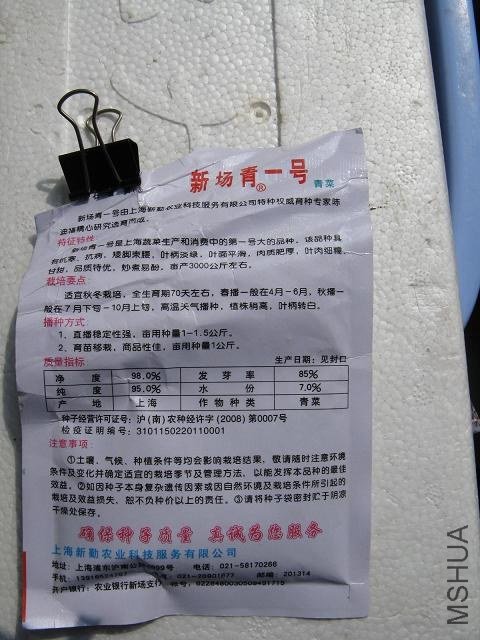 新场青一号® 青菜
新场青一号由上海新勤农业科技服务有限公司特种权威育种专家陈
油福精心研究选育而成。
特征特性
新场青一号是上海蔬菜生产和消费中的第一号大的品种，该品种具
有抗寒、抗病，矮脚束腰，叶柄淡绿，叶面平滑，肉质肥厚，叶肉细糯，
甘甜，品质特优，炒煮易酥，亩产3000公斤左右。
栽培要点：
适宜秋冬栽培，全生育期70天左右，春播一般在4月－6月，秋播一
般在7月下旬－10月上旬，高温天气播种，植株稍高，叶柄转白。
播种方式：
1、直播稳定性强，亩用种量1－1.5公斤。
2、育苗移栽，商品性佳，亩用种量1公斤。
质量指标 生产日期：见封口
净 度 98.0% 发 芽 率 85%
纯 度 95.0% 水 份 7.0%
产 地 上海 作 物 种 类 青菜
种子经营许可证号：沪(南)农种经许字(2008)第0007号
检疫证明编号：3101150220110001
注意事项：
①土壤、气候、种植条件等均会影响栽培结果，敬请随时注意环境
条件及变化并确定适宜的栽培季节及管理方法，以能发挥本品种的最佳
效益。②如因种子本身复杂遗传因素或因自然环境及栽培条件所引起的
栽培及效益损失，恕不负种价以上的责任。③请将种子袋密封贮于阴凉
干燥处保存。
确保种子质量 真诚为您服务
上海新勤农业科技服务有限公司
地址：上海浦东沪南公路 999号 电话：021-58170266
手机： 021-20901877 邮编：201314
开户银行：农业银行新场支行
MSHUA